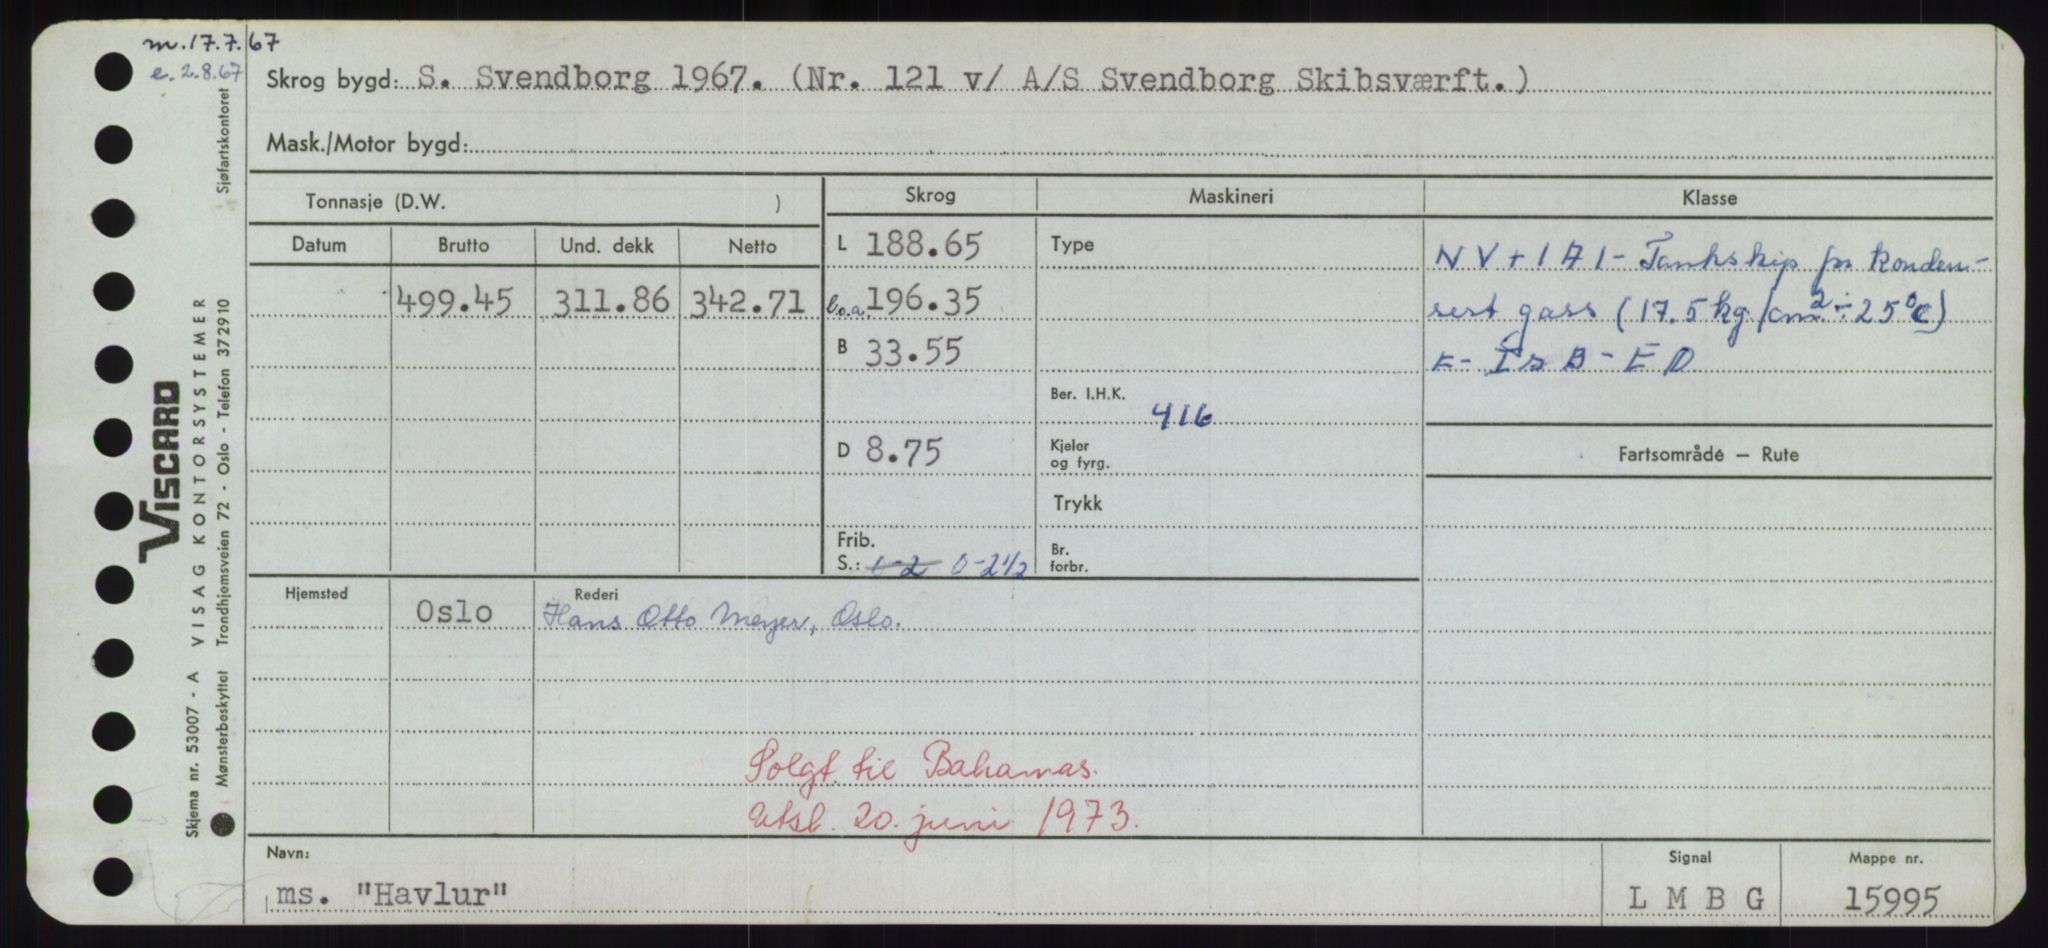 m. 17.7.67
e. 2.8.67
Skrog bygd: S. Svendborg 1967. (Nr. 121 v/ A/S Svendborg Skibsværft.)
Mask./Motor bygd:
Tonnasje (D.W. )
Skrog
Maskineri
Klasse
Datum
Brutto
Und. dekk
Netto
499.45
311.86
342.71
L 188.65
l.o.a. 196.35
B 33.55
D 8.75
Frib.
S.: 0-2 0-2 1/2
Type
Ber. I.H.K.
416
Kjeler
og fyrg.
Trykk
Br.
forbr.
NV+1A1- Tankskip for konden-
sert gass (17.5 kg/cm² ÷ 25°C)
E- Is B - ED
Fartsområde — Rute
Hjemsted
Rederi
Oslo
Hans Otto Meyer, Oslo.
Solgt til Bahamas.
Utsl. 20. juni 1973.
Navn:
ms. "Havlur"
Signal
L M B G
Mappe nr.
15995
VISCARD
VISAG KONTORSYSTEMER
Trondhjemsveien 72 - Oslo - Telefon 372910
Skjema nr. 53007 - A
Mønsterbeskyttet
Sjøfartskontoret